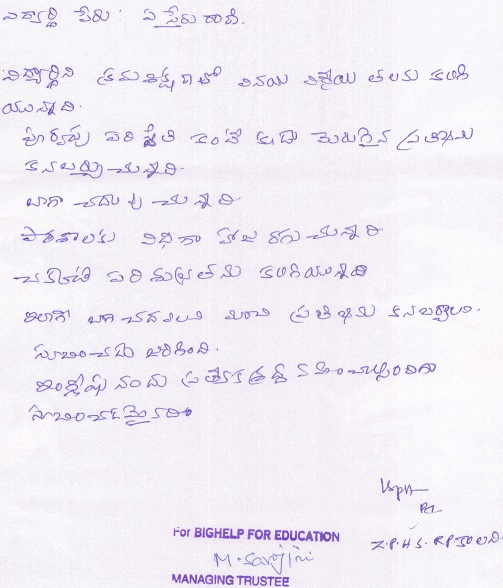 విద్యార్థి పేరు : ఏ స్నేహ రాణి.
విద్యార్థిని క్రమశిక్షణతో వినయ విధేయ తలను కలిగి
యున్నది.
పూర్వపు పరిస్థితి కంటే కూడా మెరుగైన ప్రతిభను
కనబర్చుచున్నది.
బాగా చదువు చున్నది
పాఠశాలకు విధిగా హాజరగుచున్నది
చక్కటి పరిశుభ్రతను కలిగియున్నది
ఇలాగే బాగా చదవాలి మంచి ప్రతిభను కనబర్చాలి.
సూచించడం జరిగింది.
ఇంగ్లీషు నందు ప్రత్యేకశ్రద్ధ వహించాల్సిందిగా
సూచించడమైనది
For BIGHELP FOR EDUCATION
M. Sarojini
MANAGING TRUSTEE
Z.P.H.S.